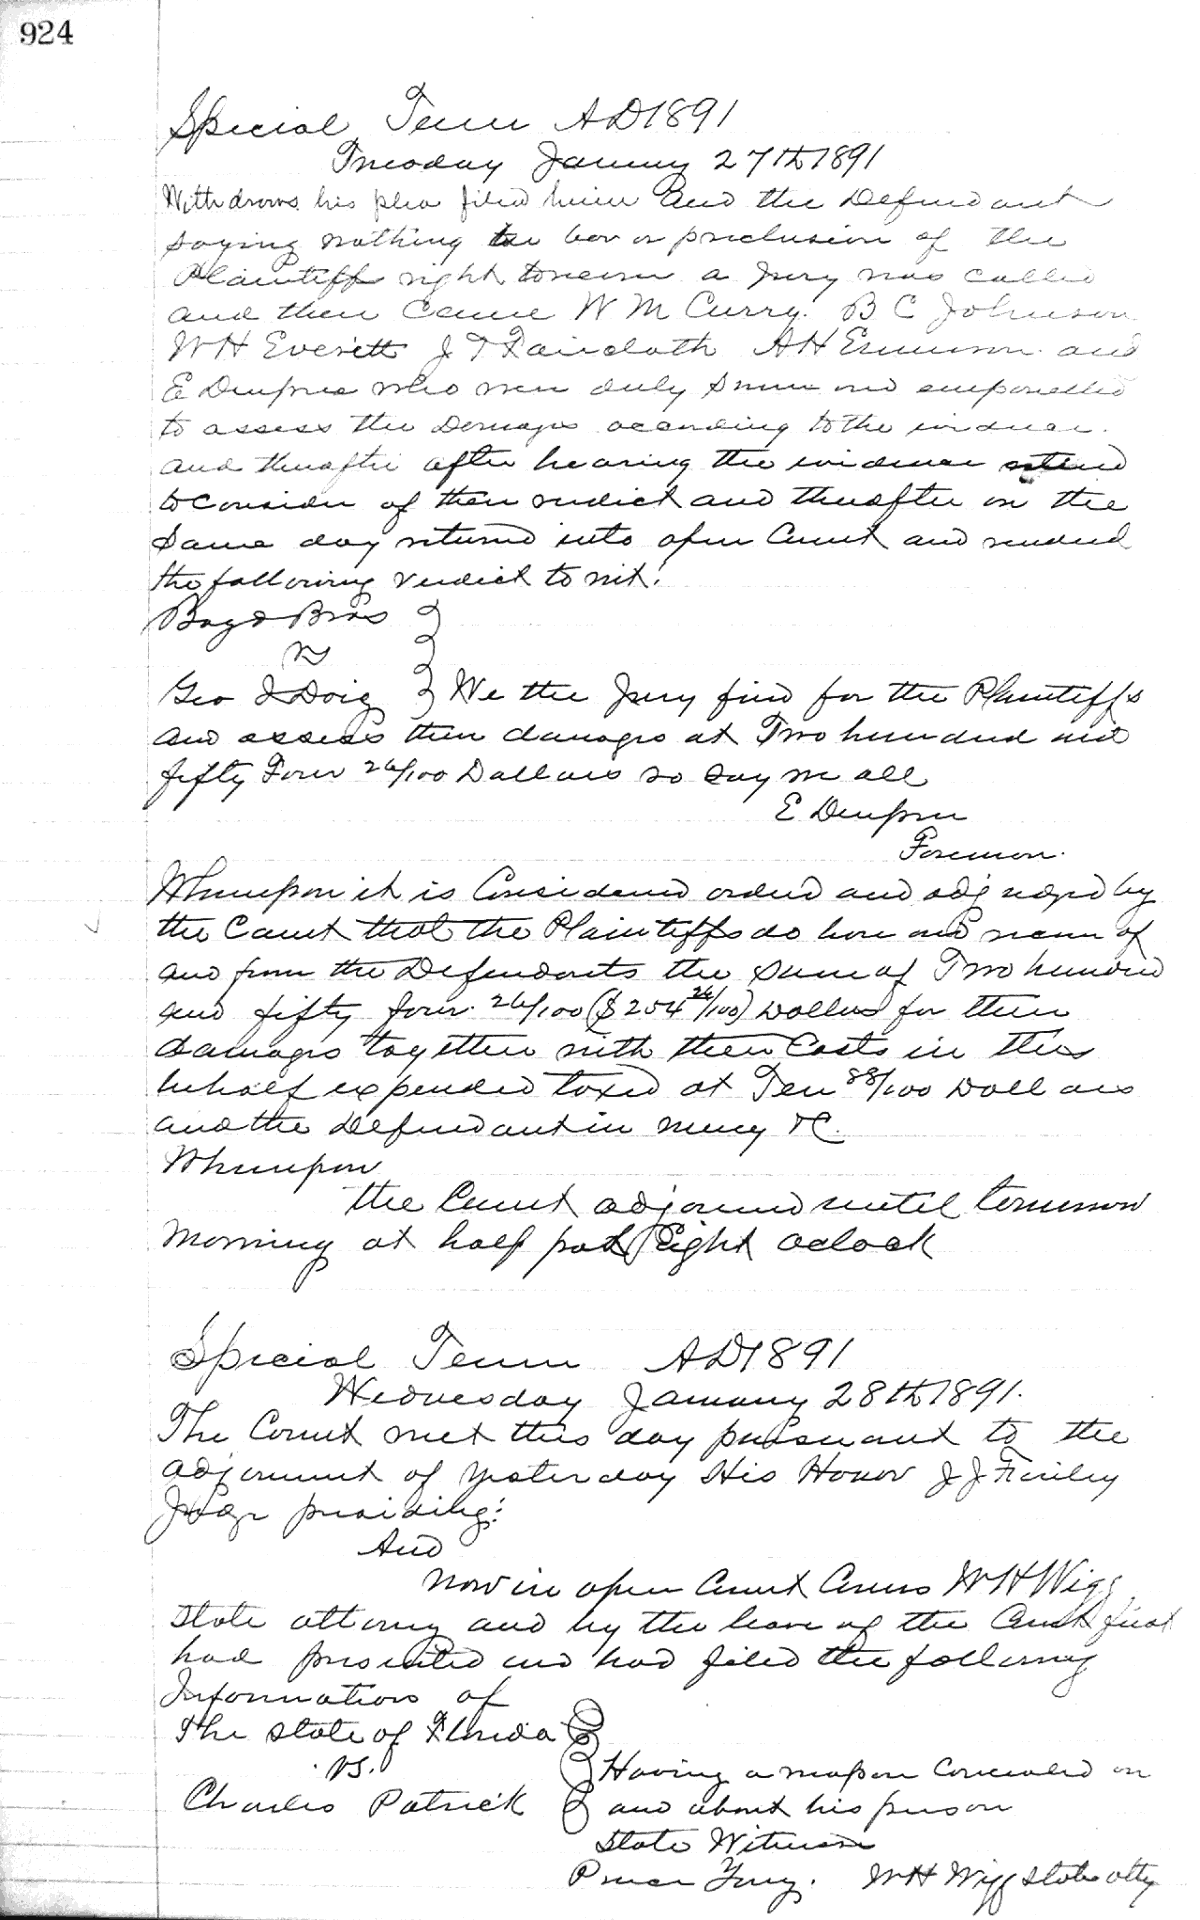 924
Special Term AD 1891
Tuesday January 27th 1891
Withdrawn his plea filed herein and the Defendant
saying nothing in bar or preclusion of the
Plaintiffs right to recover a Jury was called
and then Came W M Curry. B C Johnson
W H Everett J T Faircloth A H and
E Dupree who were duly sworn and empanelled
to assess the Damages according to the evidence.
and thereafter after hearing the evidence retired
to consider of their verdict and thereafter on the
Same day returned into open Court and rendered
the following verdict to wit:
Boyd Bros
vs
Geo I Doig We the Jury find for the Plaintiffs
and assess their damages at Two hundred and
fifty Four 26/100 Dollars so say we all
E Dupree
Foreman.
Whereupon it is Considered ordered and adjudged by
the Court that the Plaintiffs do have and recover of
and from the Defendants the sum of Two hundred
and fifty four 26/100 ($254 26/100) Dollars for their
damages together with their Costs in this
behalf expended taxed at Ten 88/100 Dollars
and the Defendant in mercy &C.
Whereupon
the Court adjourned until tomorrow
Morning at half past Eight oclock
Special Term AD 1891
Wednesday January 28th 1891.
The Court met this day pursuant to the
adjournment of yesterday His Honor J J Finley
Judge presiding:
And
now in open Court Comes W H Wigg
State attorney and by the leave of the Court first
had presented and had filed the following
Information of
The State of Florida
vs. Having a weapon Concealed on
Charles Patrick and about his person
State Witness
W H Wigg State atty